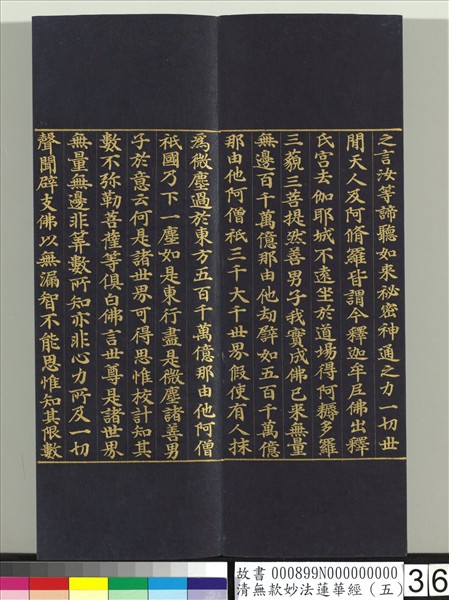 之言汝等諦聽如來祕密神通之力一切世
間天人及阿脩羅皆謂今釋迦牟尼佛出釋
氏宮去伽耶城不遠坐於道場得阿耨多羅
三藐三菩提然善男子我實成佛已來無量
無邊百千萬億那由他劫譬如五百千萬億
那由他阿僧祇三千大千世界假使有人抹
為微塵過於東方五百千萬億那由他阿僧
祇國乃下一塵如是東行盡是微塵諸善男
子於意云何是諸世界可得思惟校計知其
數不弥勒菩薩等俱白佛言世尊是諸世界
無量無邊非筭數所知亦非心力所及一切
聲聞辟支佛以無漏智不能思惟知其限數
故書 000899N000000000
清無款妙法蓮華經（五）
36